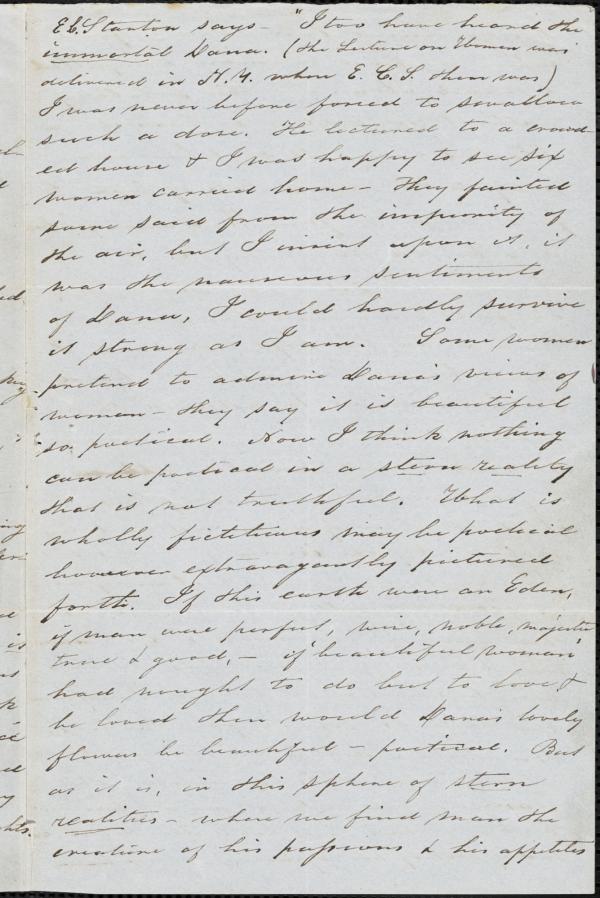 E C. Stanton says - "I too have heard the
immortal Dana. (the Lecture on Women was
delivered in N.Y. when E. C. S. then was)
I was never before forced to swallow
such a dose. He lectured to a crowd-
ed house & I was happy to see six
women carried home - they fainted
some said from the impurity of
the air, but I insist upon it, it
was the nauseous sentiments
of Dana, I could hardly survive
it strong as I am. Some women
pretend to admire Dana's views of
woman - they say it is beautiful
so poetical. Now I think nothing
can be poetical in a stern reality
that is not truthful. What is
wholly fictitious may be poetical
however extravagantly pictured
forth. If this earth were an Eden,
if man were perfect, wise, noble, majestic
true & good, - if beautiful woman
had nought to do but to love &
be loved then would Dana's lovely
flowers be beautiful - poetical. But
as it is, in this sphere of stern
realities - where we find man the
creature of his passions & his appetites